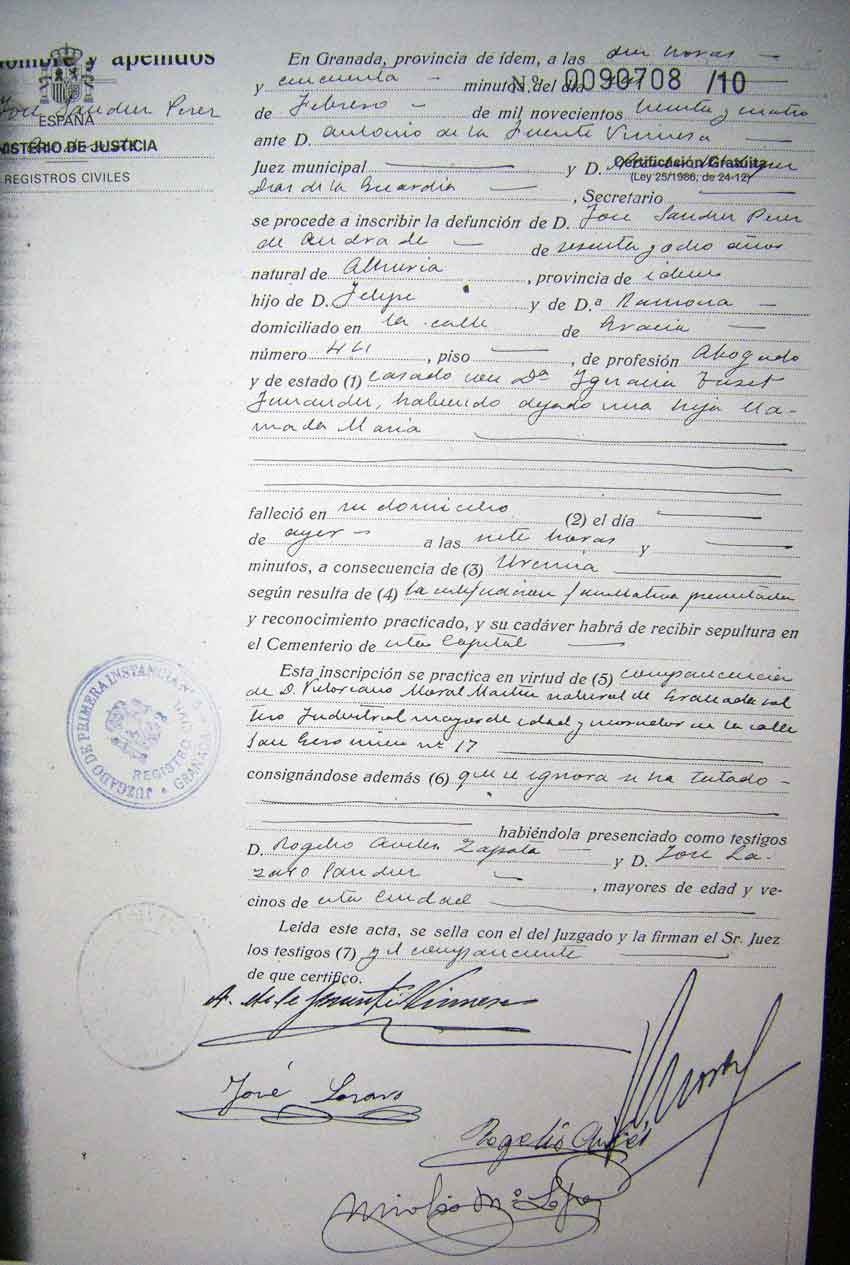 nombre y apellidos
José Sander Perez
de Andrade
ESPAÑA
MINISTERIO DE JUSTICIA
REGISTROS CIVILES
Nº 0090708 /10
Certificación Gratuita
(Ley 25/1986, de 24-12)
En Granada, provincia de ídem, a las diez horas
y cincuenta minutos del día
de Febrero de mil novecientos treinta y cuatro
ante D. Antonio de la Fuente Vinuesa
Juez municipal y D.
Diaz de la Guardia , Secretario
se procede a inscribir la defunción de D. José Sander Perez
de Andrade de sesenta y ocho años
natural de Almería , provincia de idem
hijo de D. Felipe y de D.ª Ramona
domiciliado en la calle de Gracia
número 44 , piso , de profesión Abogado
y de estado (1) casado con Dª Ignacia Fuset
Fernandez, habiendo dejado una hija lla-
mada Maria
falleció en su domicilio (2) el día
de ayer a las siete horas y
minutos, a consecuencia de (3) Uremia
según resulta de (4) la certificacion facultativa presentada
y reconocimiento practicado, y su cadáver habrá de recibir sepultura en
el Cementerio de esta Capital
Esta inscripción se practica en virtud de (5) comparecencia
de D. Victoriano Moral Martin natural de Granada sol
tero Industrial mayor de edad y morador en la calle
San Geronimo nº 17
consignándose además (6) que se ignora si ha testado
habiéndola presenciado como testigos
D. Rogelio Aviles Zapata y D. José La-
zaro Sander , mayores de edad y ve-
cinos de esta Ciudad
Leída este acta, se sella con el del Juzgado y la firman el Sr. Juez
los testigos (7) y el compareciente
de que certifico.
A. de la Fuente Vinuesa
José Lazaro
V. Moral
Rogelio Avilés
JUZGADO DE PRIMERA INSTANCIA Nº
REGISTRO CIVIL
GRANADA